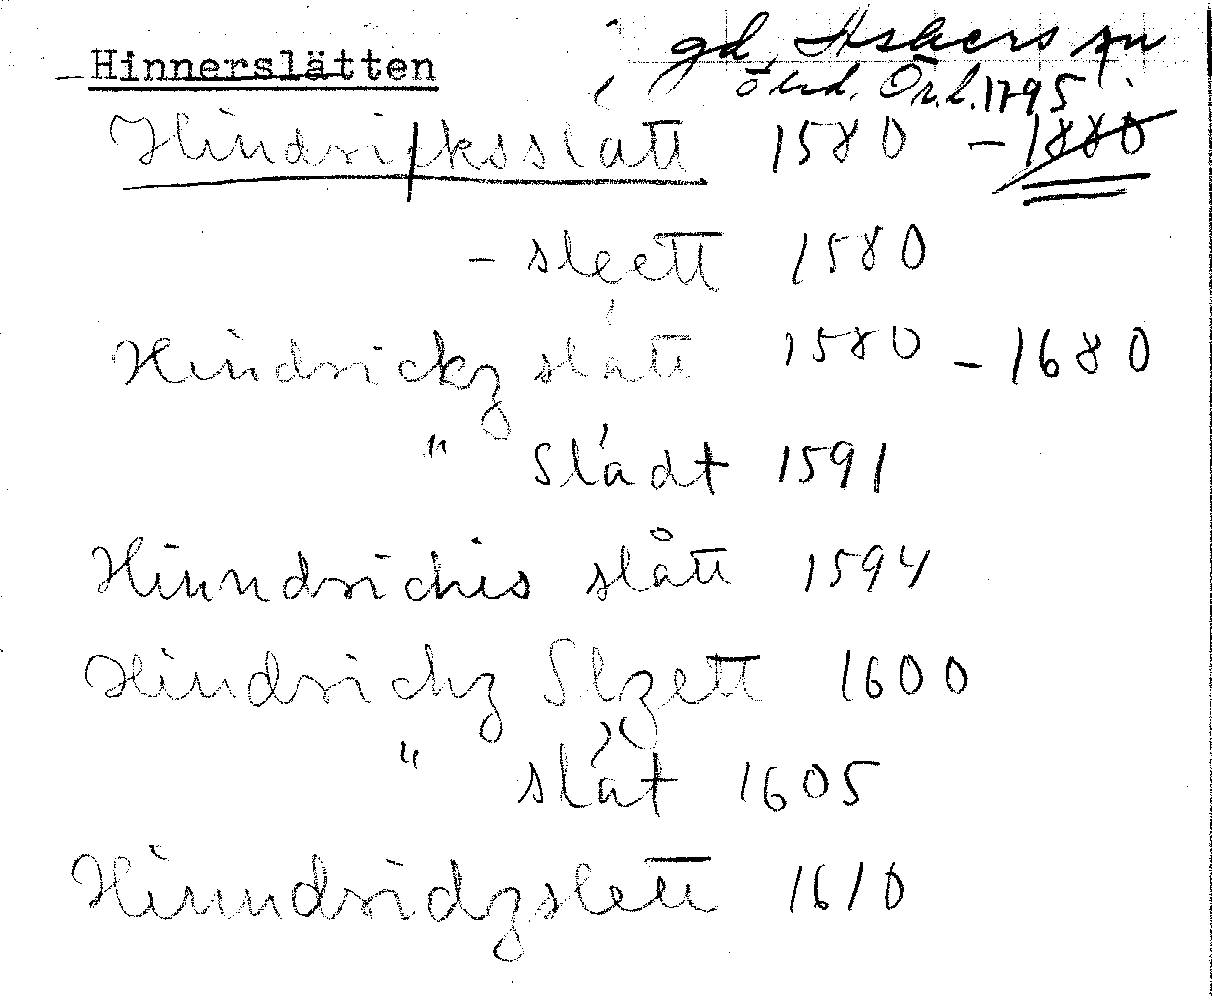 Hinnerslätten
gd, Askers sn
Ör.l. 1795
Hindricksslätt 1580 – 1880
– sleett 1580
Hindrickz slätt 1580 – 1680
" Slädt 1591
Hinndrichis slått 1594
Hindrichz Slzett 1600
" slät 1605
Hinndridzslett 1610